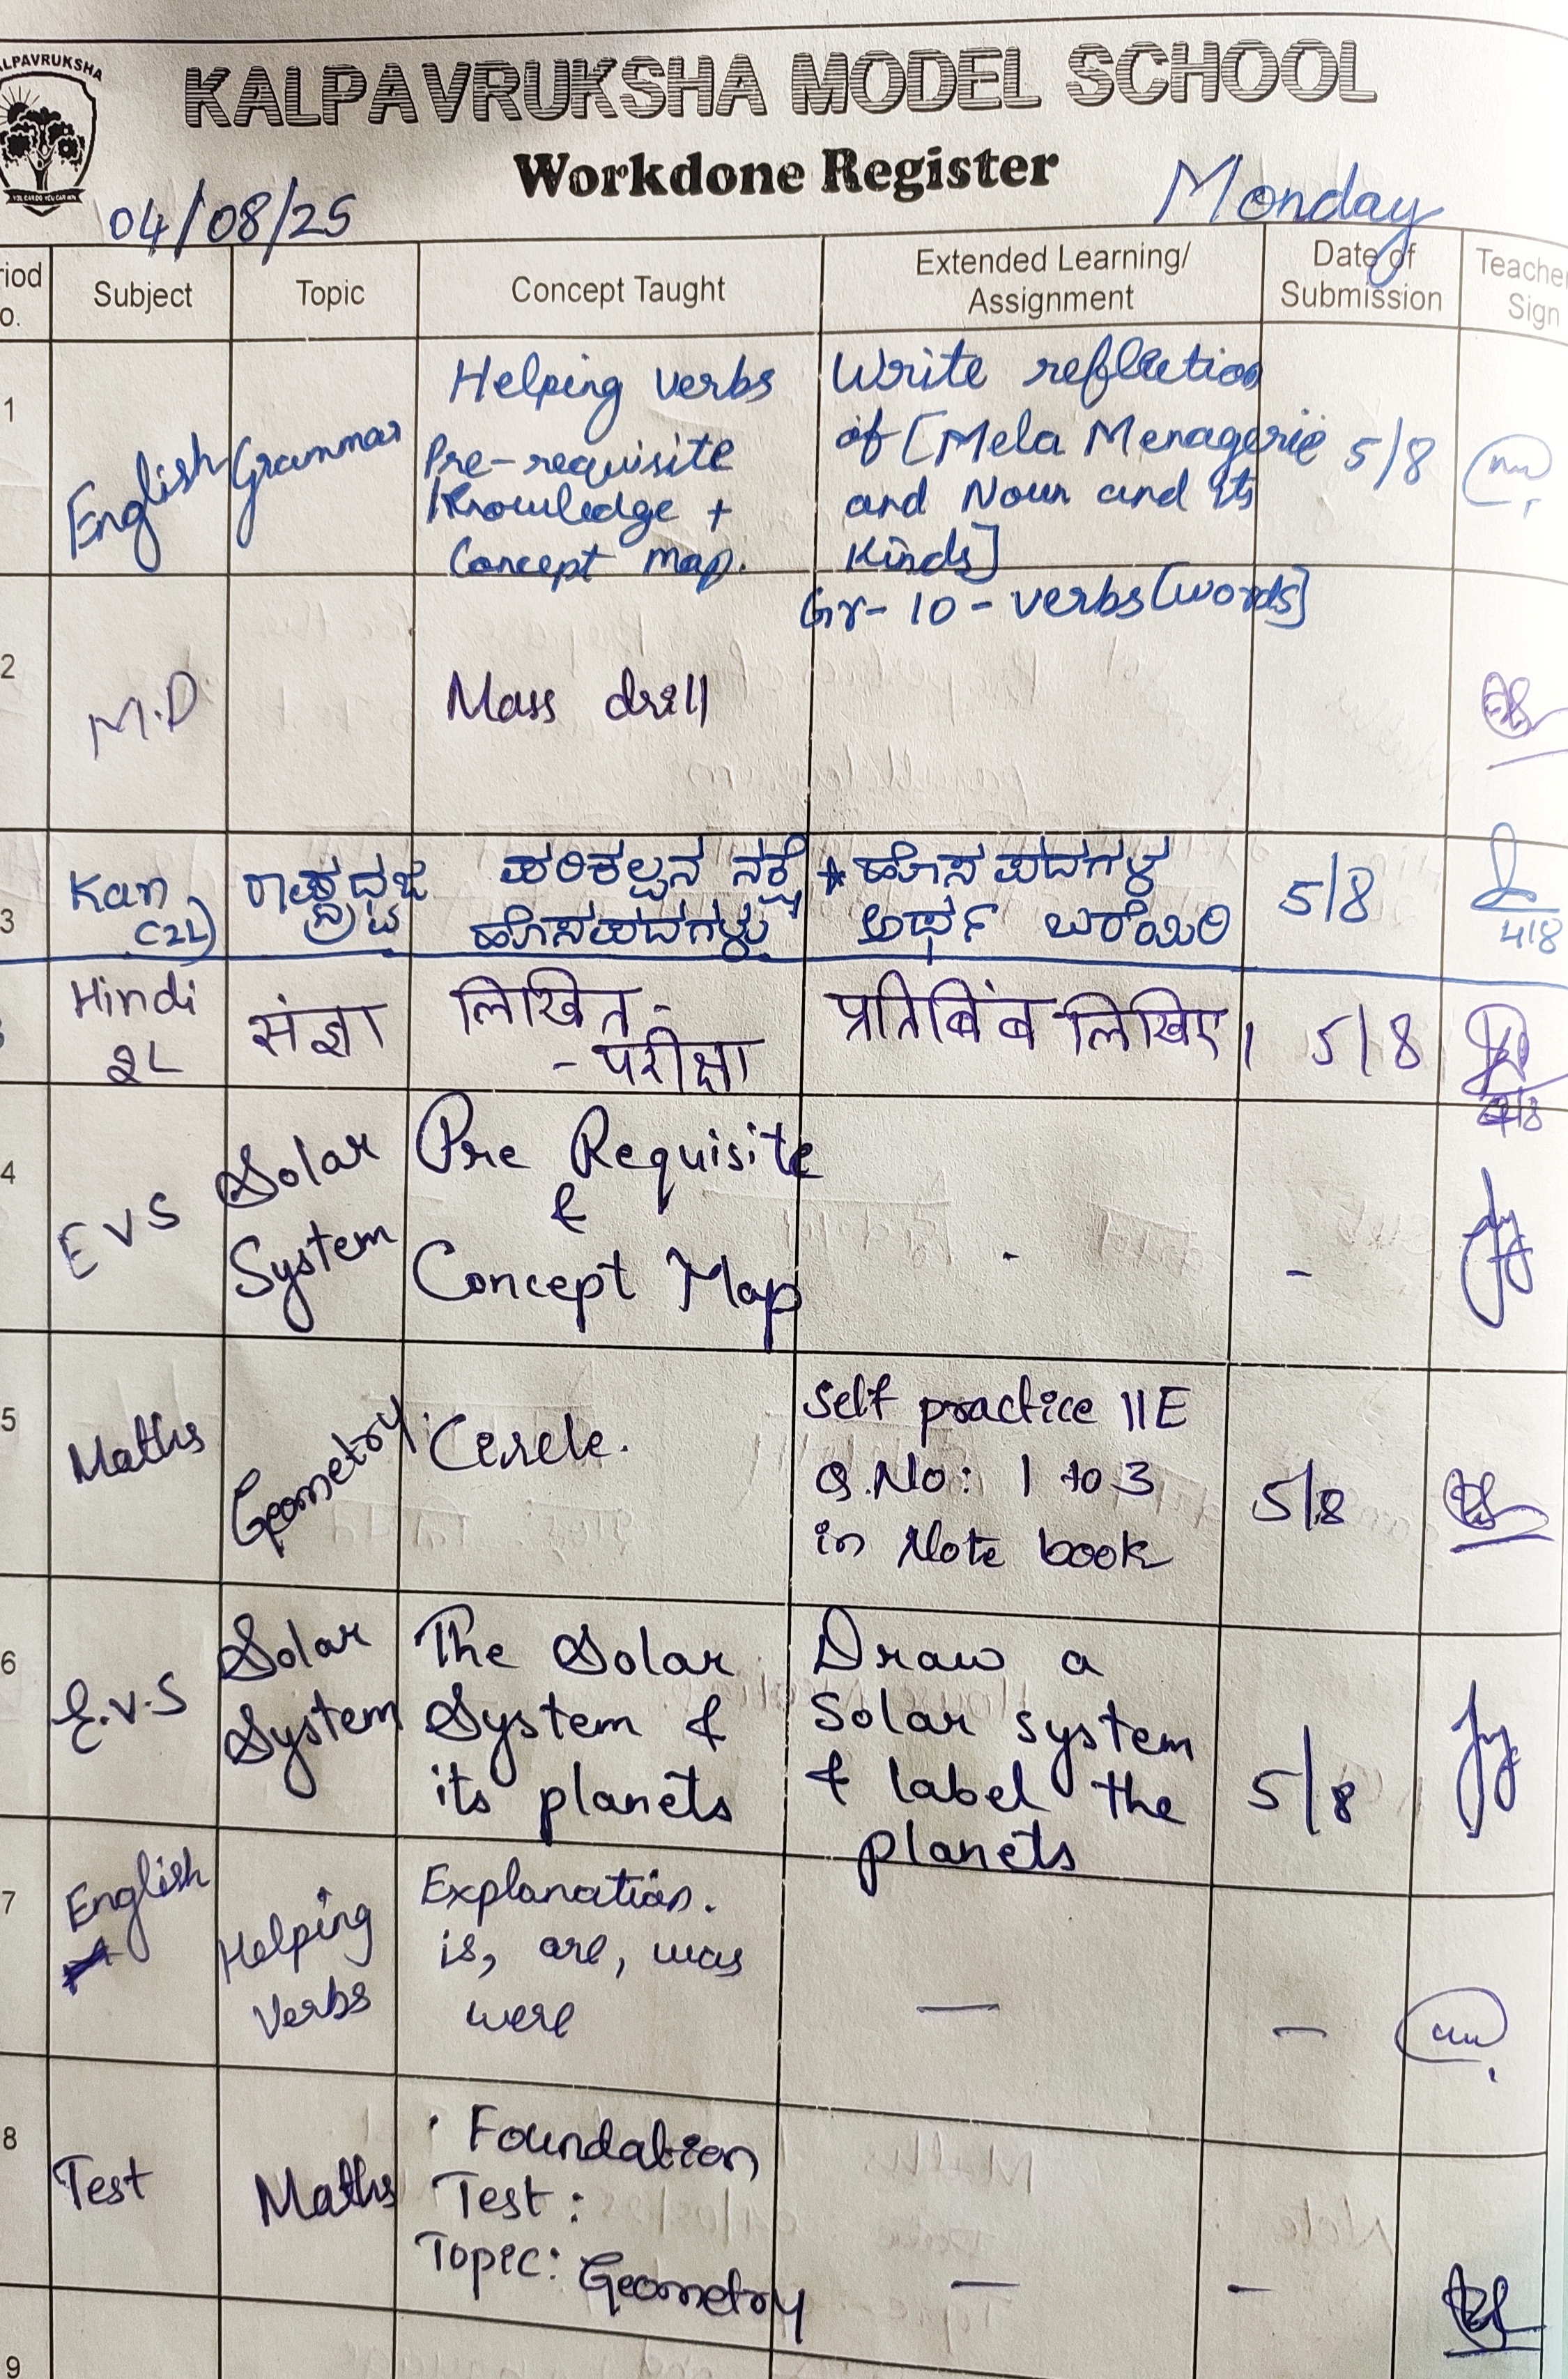 KALPAVRUKSHA
YOU CAN DO YOU CAN WIN
KALPAVRUKSHA MODEL SCHOOL
Workdone Register
04/08/25
Monday
riod
o.
Subject
Topic
Concept Taught
Extended Learning/
Assignment
Date of
Submission
Teacher
Sign
1
English
Grammar
Helping verbs
Pre-requisite
Knowledge +
Concept map.
Write reflection
of [Mela Menagerie
and Noun and its
Kinds]
Gr- 10 - verbs [words]
5/8
2
M.D
Mass drill
3
Kan
(2L)
ರಾಷ್ಟ್ರಧ್ವಜ
ಪರಿಕಲ್ಪನ ನಕ್ಷೆ
ಹೊಸಪದಗಳು
* ಹೊಸ ಪದಗಳ
ಅರ್ಥ ಬರೆಯಿರಿ
5/8
4/8
Hindi
2L
संज्ञा
लिखित -
- परीक्षा
प्रतिबिंब लिखिए।
5/8
4/8
4
EVS
Solar
System
Pre Requisite
&
Concept Map
-
-
5
Maths
Geometry
Circle.
Self practice 11E
Q.No: 1 to 3
in Note book
5/8
6
E.V.S
Solar
System
The Solar
System &
its planets
Draw a
Solar system
& label the
planets
5/8
7
English
Helping
Verbs
Explanation.
is, are, was
were
—
—
8
Test
Maths
Foundation
Test:
Topic: Geometry
—
—
9